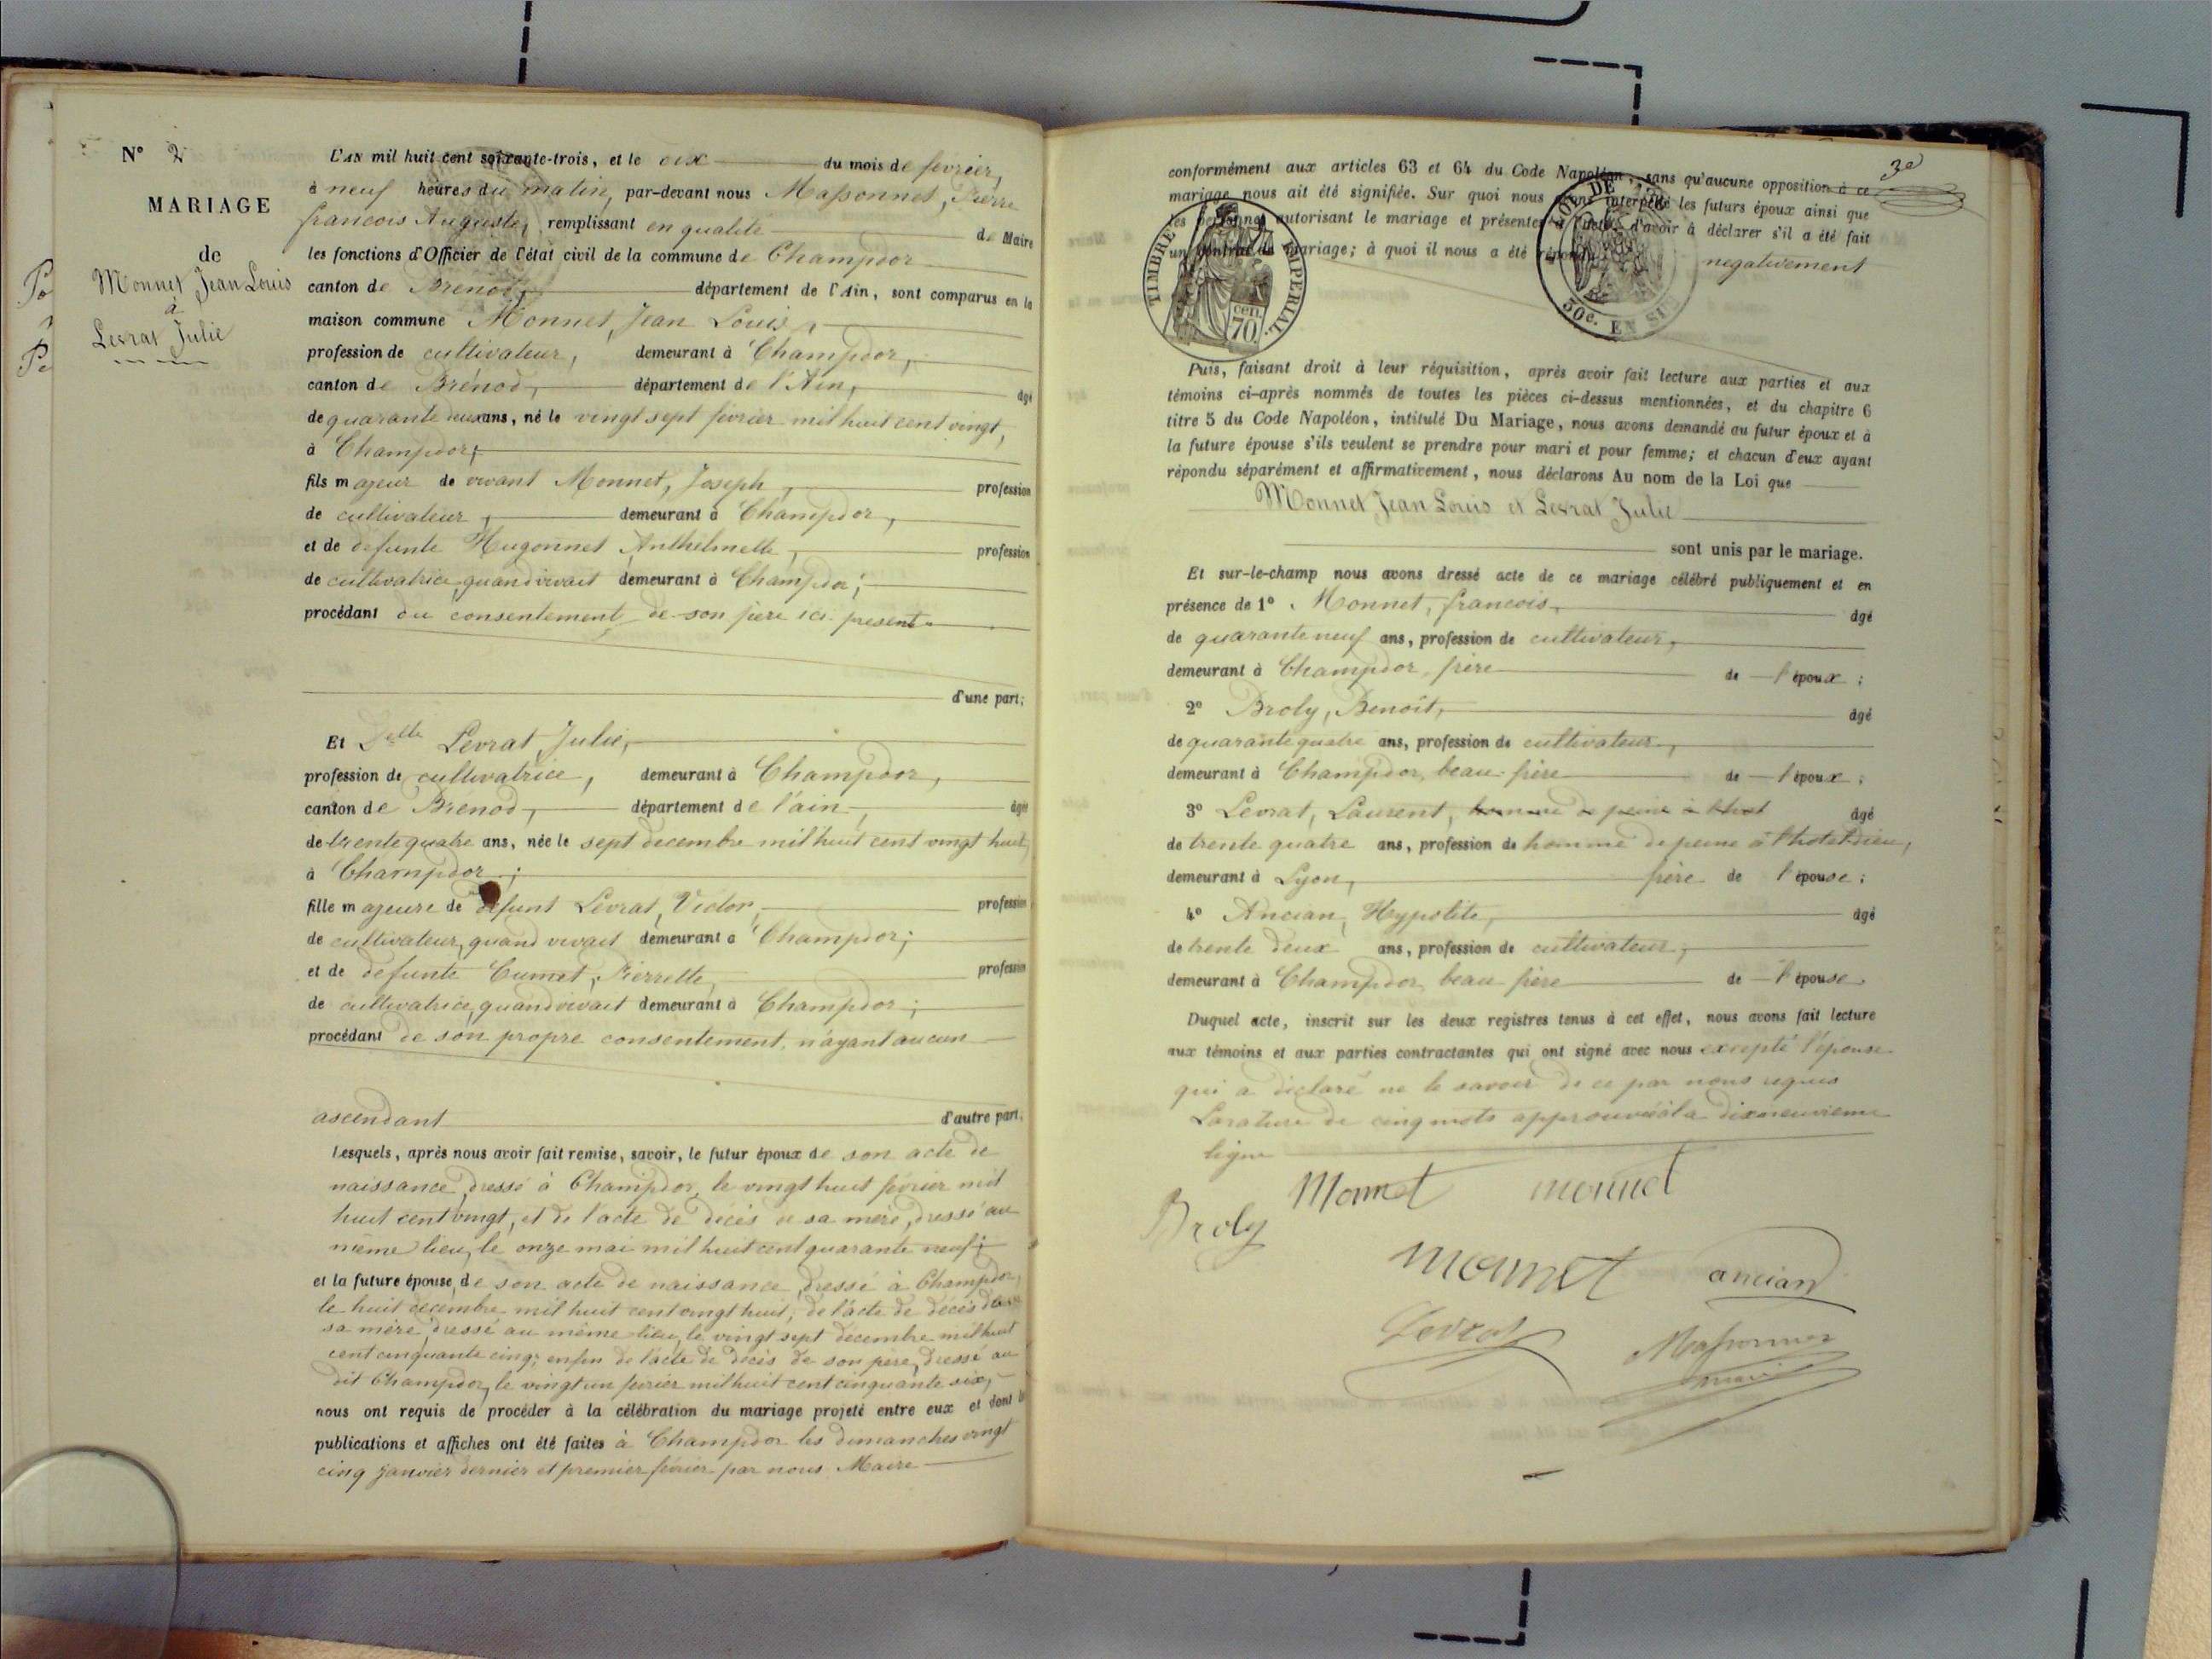 N° 2
MARIAGE
de
Monnet Jean Louis
à
Levrat Julie
L'AN mil huit cent soixante-trois, et le dix du mois de fevrier,
à neuf heures du matin, par-devant nous Massonnet, Pierre
francois Auguste, remplissant en qualité de Maire
les fonctions d'Officier de l'état civil de la commune de Champdor
canton de Brenod, département de l'Ain, sont comparus en la
maison commune Monnet, Jean Louis,
profession de cultivateur, demeurant à Champdor,
canton de Brénod, département de l'Ain, âgé
de quarante deux ans, né le vingt sept fevrier mil huit cent vingt,
à Champdor;
fils majeur de vivant Monnet, Joseph, profession
de cultivateur, demeurant à Champdor,
et de defunte Hugonnet Anthelmette, profession
de cultivatrice, quand vivait demeurant à Champdor;
procédant du consentement de son père ici present
d'une part;
Et Delle Levrat Julie,
profession de cultivatrice, demeurant à Champdor,
canton de Brenod, département de l'ain, âgée
de trente quatre ans, née le sept decembre mil huit cent vingt huit
à Champdor;
fille majeure de defunt Levrat, Victor, profession
de cultivateur, quand vivait demeurant à Champdor;
et de defunte Cumet, Pierrette, profession
de cultivatrice, quand vivait demeurant à Champdor;
procédant de son propre consentement, n'ayant aucun
ascendant d'autre part.
Lesquels, après nous avoir fait remise, savoir, le futur époux de son acte de
naissance, dressé à Champdor, le vingt huit février mil
huit cent vingt, et de l'acte de décès de sa mère, dressé au
même lieu, le onze mai mil huit cent quarante neuf;
et la future épouse, de son acte de naissance, dressé à Champdor,
le huit decembre mil huit cent vingt huit; de l'acte de décès de
sa mère, dressé au même lieu, le vingt sept décembre mil huit
cent cinquante cinq; enfin de l'acte de décès de son père, dressé au
dit Champdor, le vingt un février mil huit cent cinquante six,
nous ont requis de procéder à la célébration du mariage projeté entre eux et dont les
publications et affiches ont été faites à Champdor les dimanches vingt
cinq janvier dernier et premier février par nous Maire
3e
conformément aux articles 63 et 64 du Code Napoléon, sans qu'aucune opposition à ce
mariage nous ait été signifiée. Sur quoi nous avons interpellé les futurs époux ainsi que
les personnes autorisant le mariage et présentes à l'acte, d'avoir à déclarer s'il a été fait
un contrat de mariage; à quoi il nous a été répondu negativement
TIMBRE IMPERIAL
70 cen.
50c. EN SUS
Puis, faisant droit à leur réquisition, après avoir fait lecture aux parties et aux
témoins ci-après nommés de toutes les pièces ci-dessus mentionnées, et du chapitre 6
titre 5 du Code Napoléon, intitulé Du Mariage, nous avons demandé au futur époux et à
la future épouse s'ils veulent se prendre pour mari et pour femme; et chacun d'eux ayant
répondu séparément et affirmativement, nous déclarons Au nom de la Loi que
Monnet Jean Louis et Levrat Julie
sont unis par le mariage.
Et sur-le-champ nous avons dressé acte de ce mariage célébré publiquement et en
présence de 1° Monnet, francois, âgé
de quarante neuf ans, profession de cultivateur,
demeurant à Champdor, frère de l'époux;
2° Broly, Benoit, âgé
de quarante quatre ans, profession de cultivateur,
demeurant à Champdor, beau-frère de l'époux;
3° Levrat, Laurent, homme de peine à l'hotel âgé
de trente quatre ans, profession de homme de peine à l'hotel-dieu,
demeurant à Lyon, frère de l'épouse;
4° Ancian, Hypolite, âgé
de trente deux ans, profession de cultivateur,
demeurant à Champdor, beau frère de l'épouse.
Duquel acte, inscrit sur les deux registres tenus à cet effet, nous avons fait lecture
aux témoins et aux parties contractantes qui ont signé avec nous excepté l'épouse
qui a déclaré ne le savoir de ce par nous requis
La rature de cinq mots approuvée à la dixneuvieme
ligne
Monnet monnet
Broly
monnet ancian
Levrat Massonnet
maire